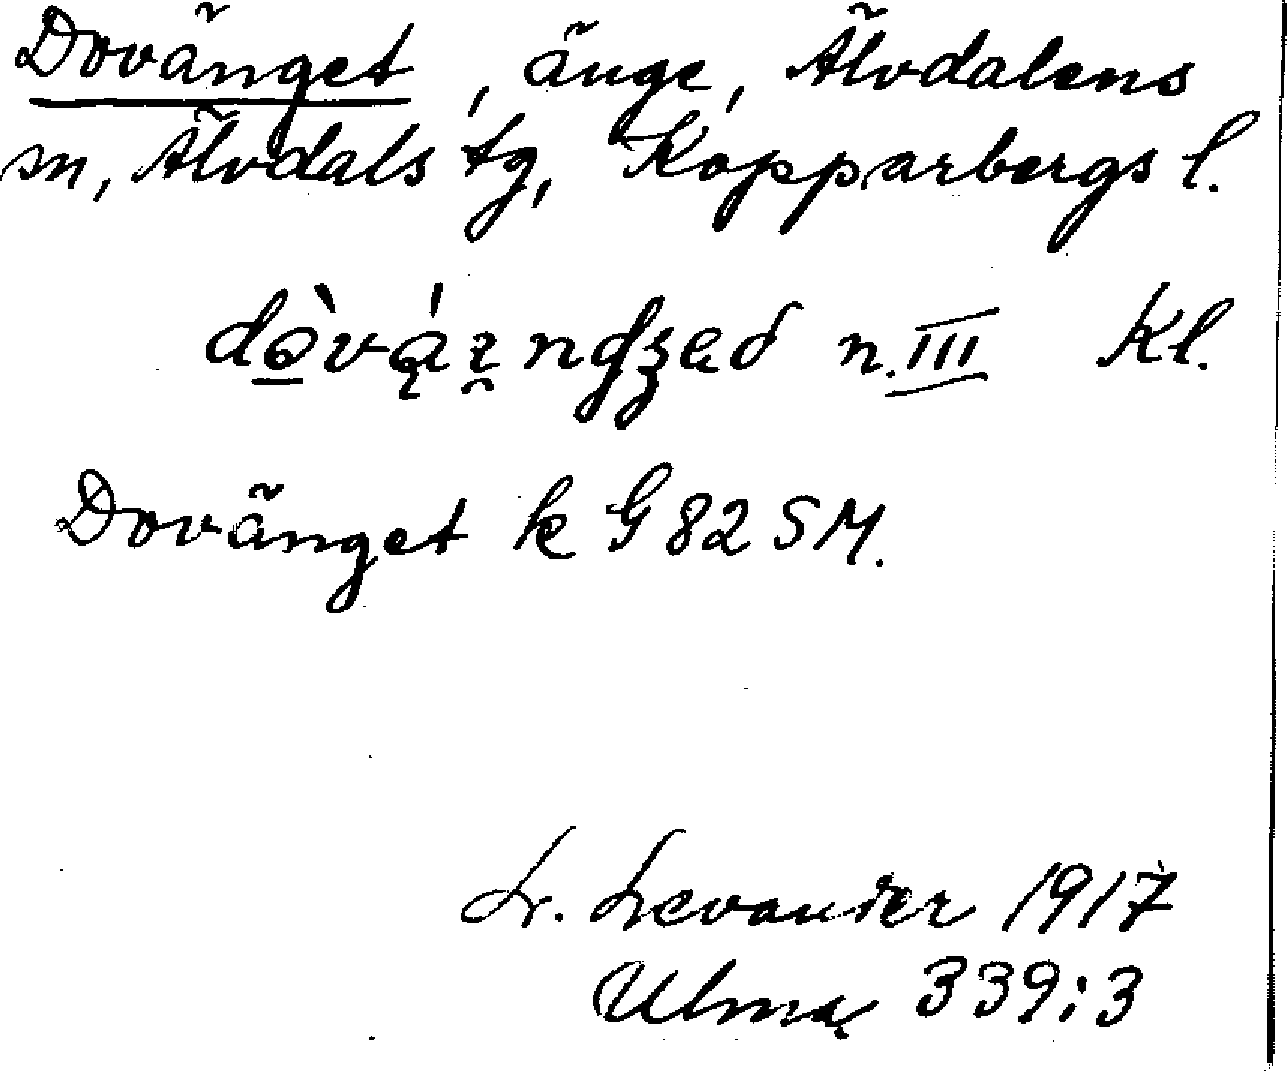 Dovänget, änge, Älvdalens
m, Älvdals tg, Kopparbergs l.
n. III Kl.
Dovänget k G 82 SM.
L. Levander 1917
Ulma 339:3